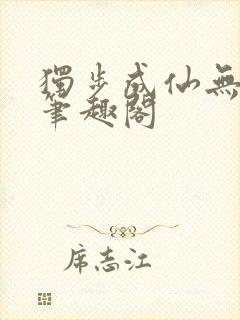 獨步成仙無
筆趣閣
席志江